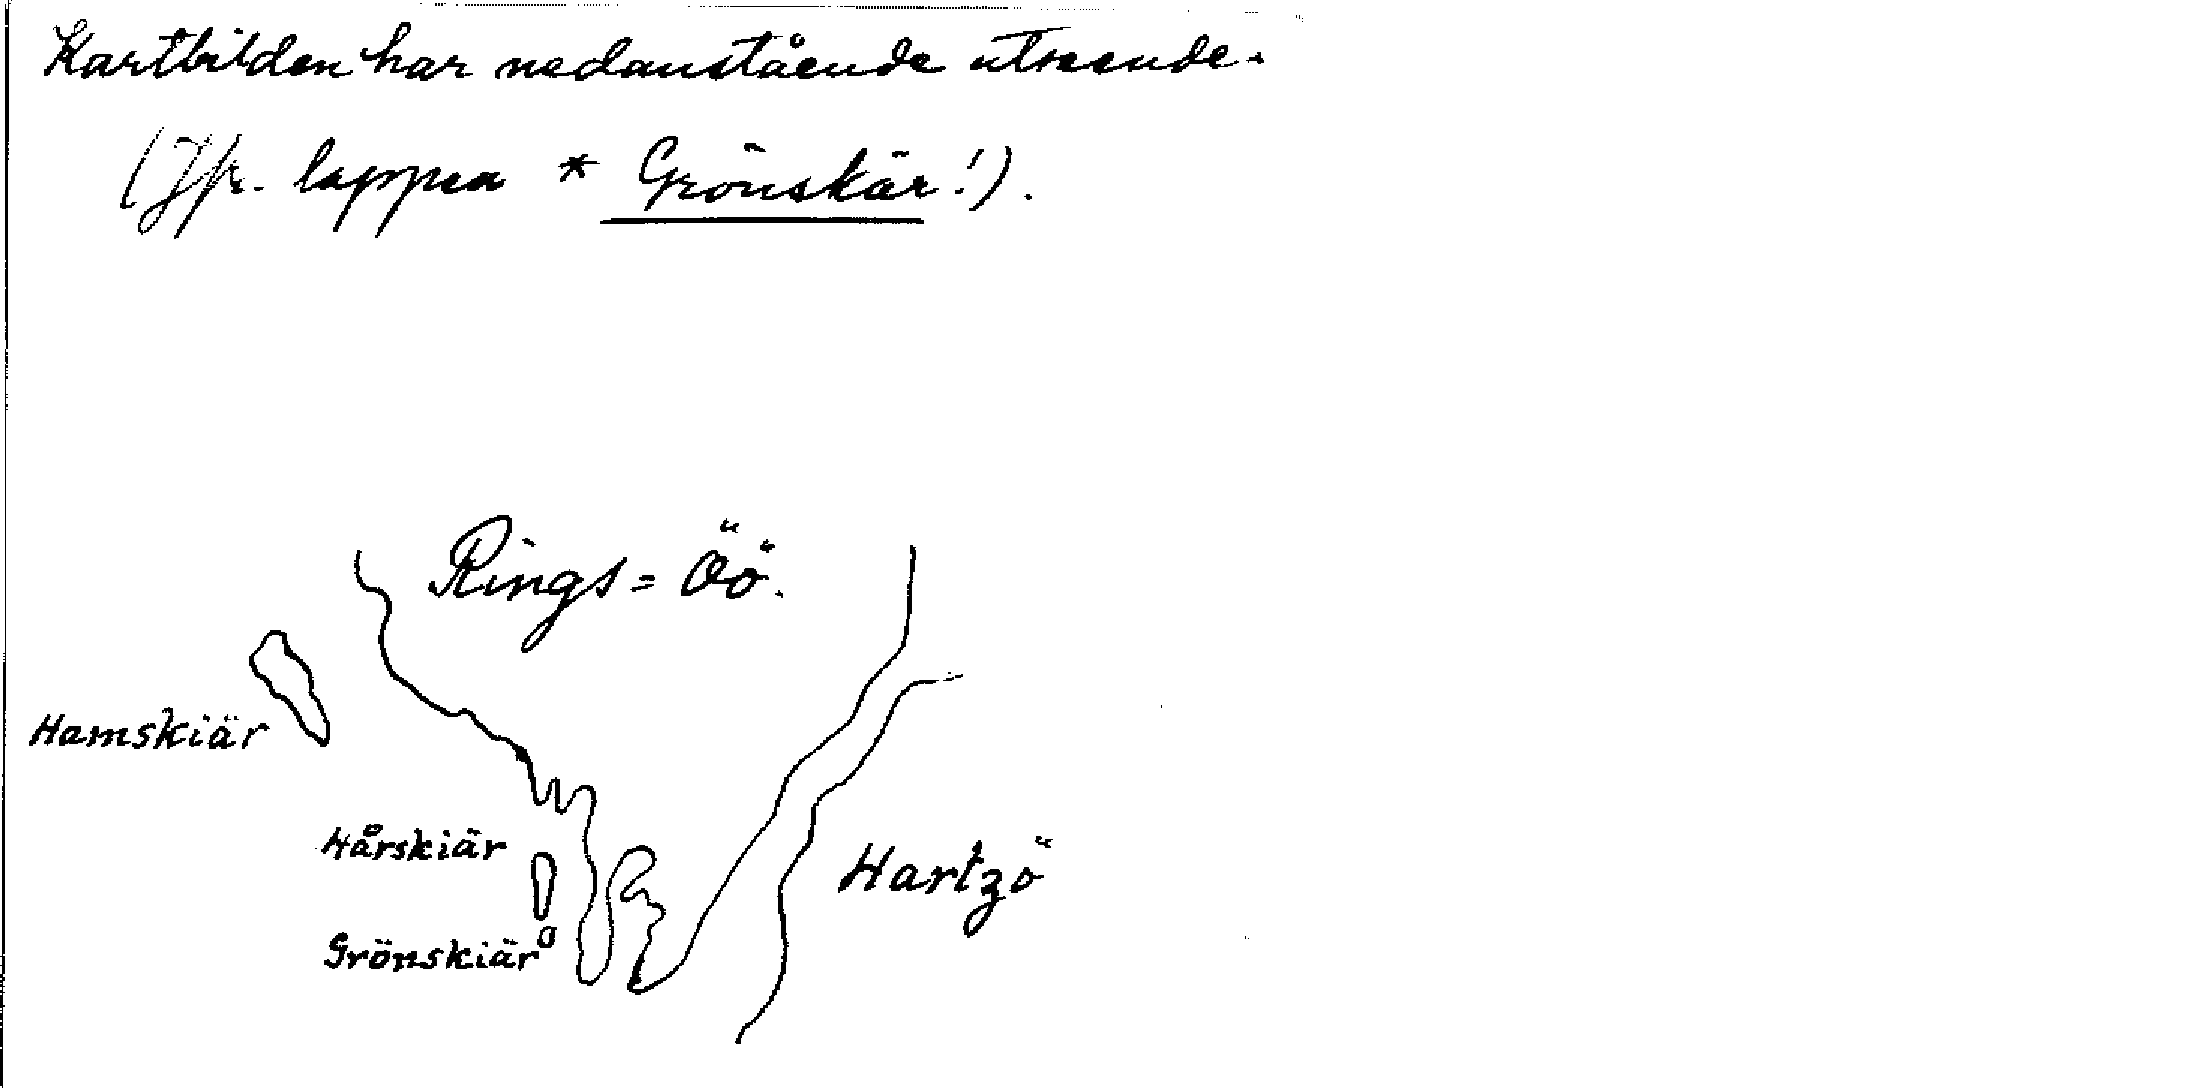 Kartbilden har nedanstående utseende.
(Jfr. lappen * Grönskär!).
Rings= Öö.
Hamskiär
Hårskiär
Hartzö
Grönskiär